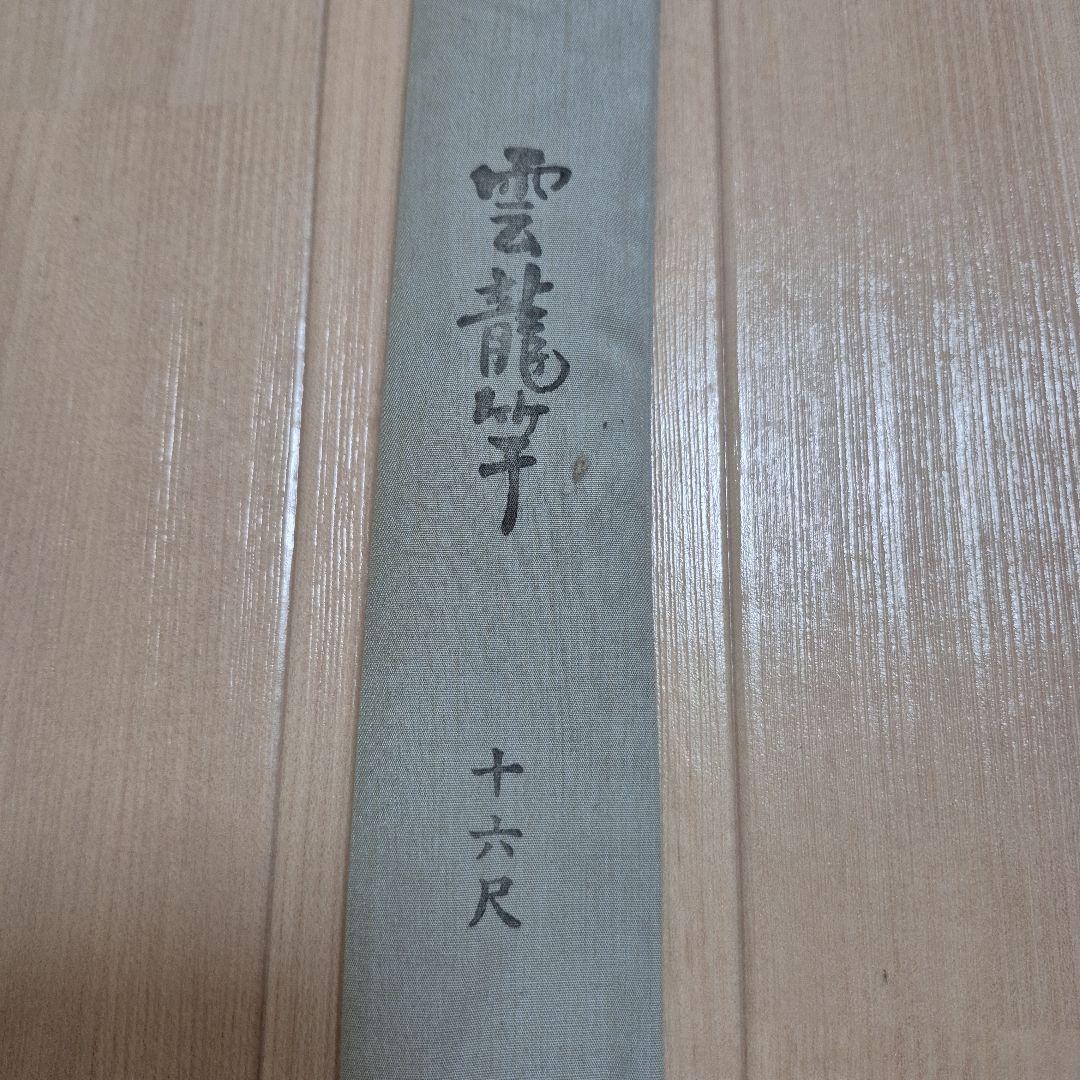 雲龍竿
十六尺